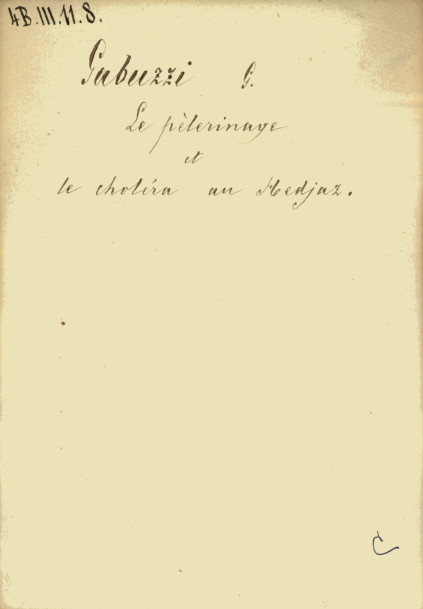 4B.III.11.8.
Gabuzzi G.
Le pèlerinage
et
le choléra au Hedjaz.
C